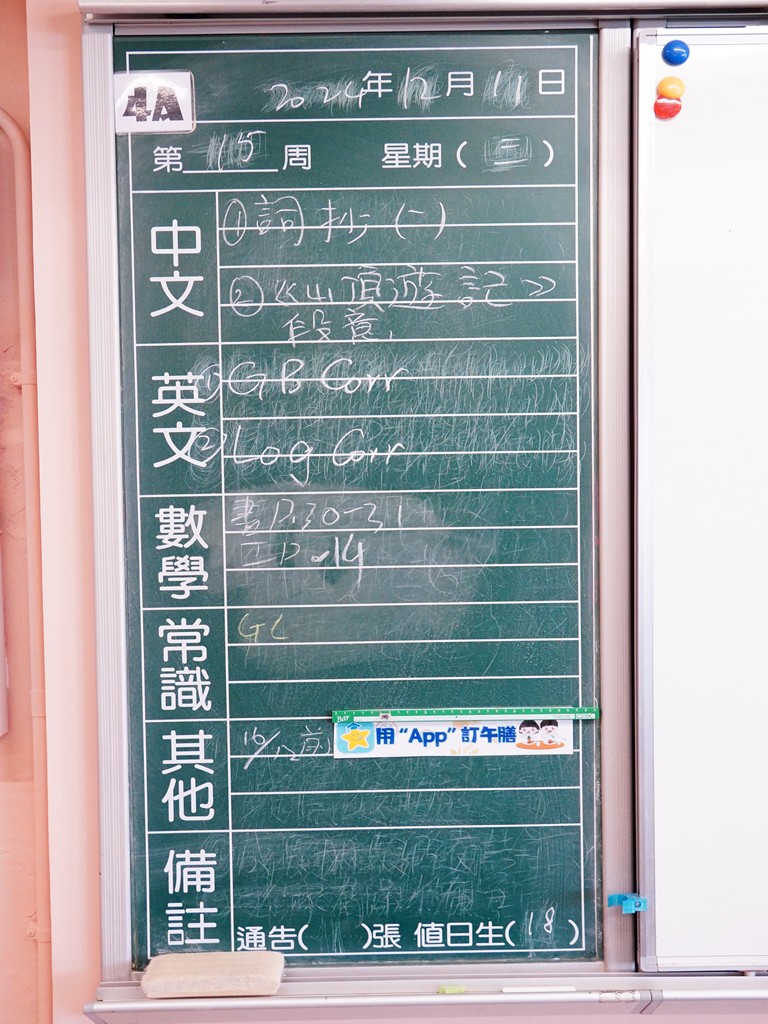 4A
2024年12月11日
第15周 星期(三)
中文
①詞抄(二)
②《山頂遊記》
段意.
英文
①GB Corr
②Log Corr
數學
書P.30-31
工P.14
常識
GC
其他
16/12前
用“App”訂午膳
備註
通告( )張 值日生(18)